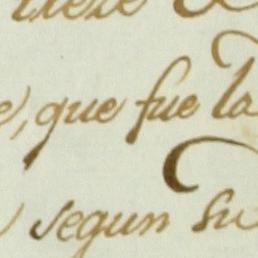 , que fue la
segun su